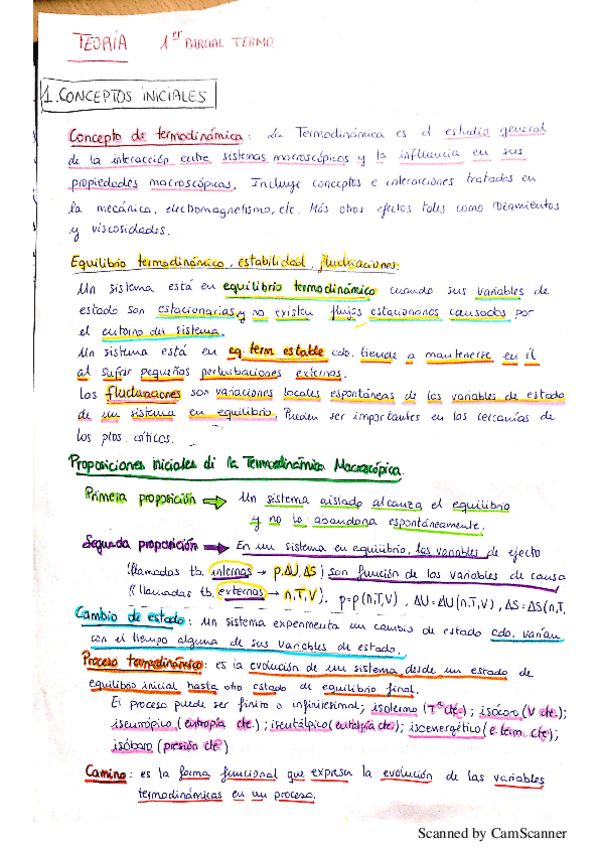 TEORÍA 1er PARCIAL TERMO.
1. CONCEPTOS INICIALES
Concepto de termodinámica: La Termodinámica es el estudio general
de la interacción entre sistemas macroscópicos y la influencia en sus
propiedades macroscópicas. Incluye conceptos e interacciones tratados en
la mecánica, electromagnetismo, etc. Más otros efectos tales como rozamientos
y viscosidades.
Equilibrio termodinámico, estabilidad, fluctuaciones:
Un sistema está en equilibrio termodinámico cuando sus variables de
estado son estacionarias y no existen flujos estacionarios causados por
el entorno del sistema.
Un sistema está en eq. term. estable cdo. tiende a mantenerse en él
al sufrir pequeñas perturbaciones externas.
Las fluctuaciones son variaciones locales espontáneas de las variables de estado
de un sistema en equilibrio. Pueden ser importantes en las cercanías de
los ptos. críticos.
Proposiciones iniciales di la Termodinámica Macroscópica.
Primera proposición → Un sistema aislado alcanza el equilibrio
y no lo abandona espontáneamente.
Segunda proposición → En un sistema en equilibrio, las variables de efecto
(llamadas tb. internas → p, ΔU, ΔS) son función de las variables de causa
(llamadas tb. externas → n, T, V). p=p(n,T,V), ΔU=ΔU(n,T,V), ΔS=ΔS(n,T,
Cambio de estado: un sistema experimenta un cambio de estado cdo. varían
con el tiempo alguna de sus variables de estado.
Proceso termodinámico: es la evolución de un sistema desde un estado de
equilibrio inicial hasta otro estado de equilibrio final.
El proceso puede ser finito o infinitesimal; isotermo (Tª cte.); isócoro (V cte.);
isentrópico (entropía cte.); isentálpico (entalpía cte.); isoenergético (e. term. cte.);
isóbaro (presión cte.)
Camino: es la forma funcional que expresa la evolución de las variables
termodinámicas en un proceso.
Scanned by CamScanner